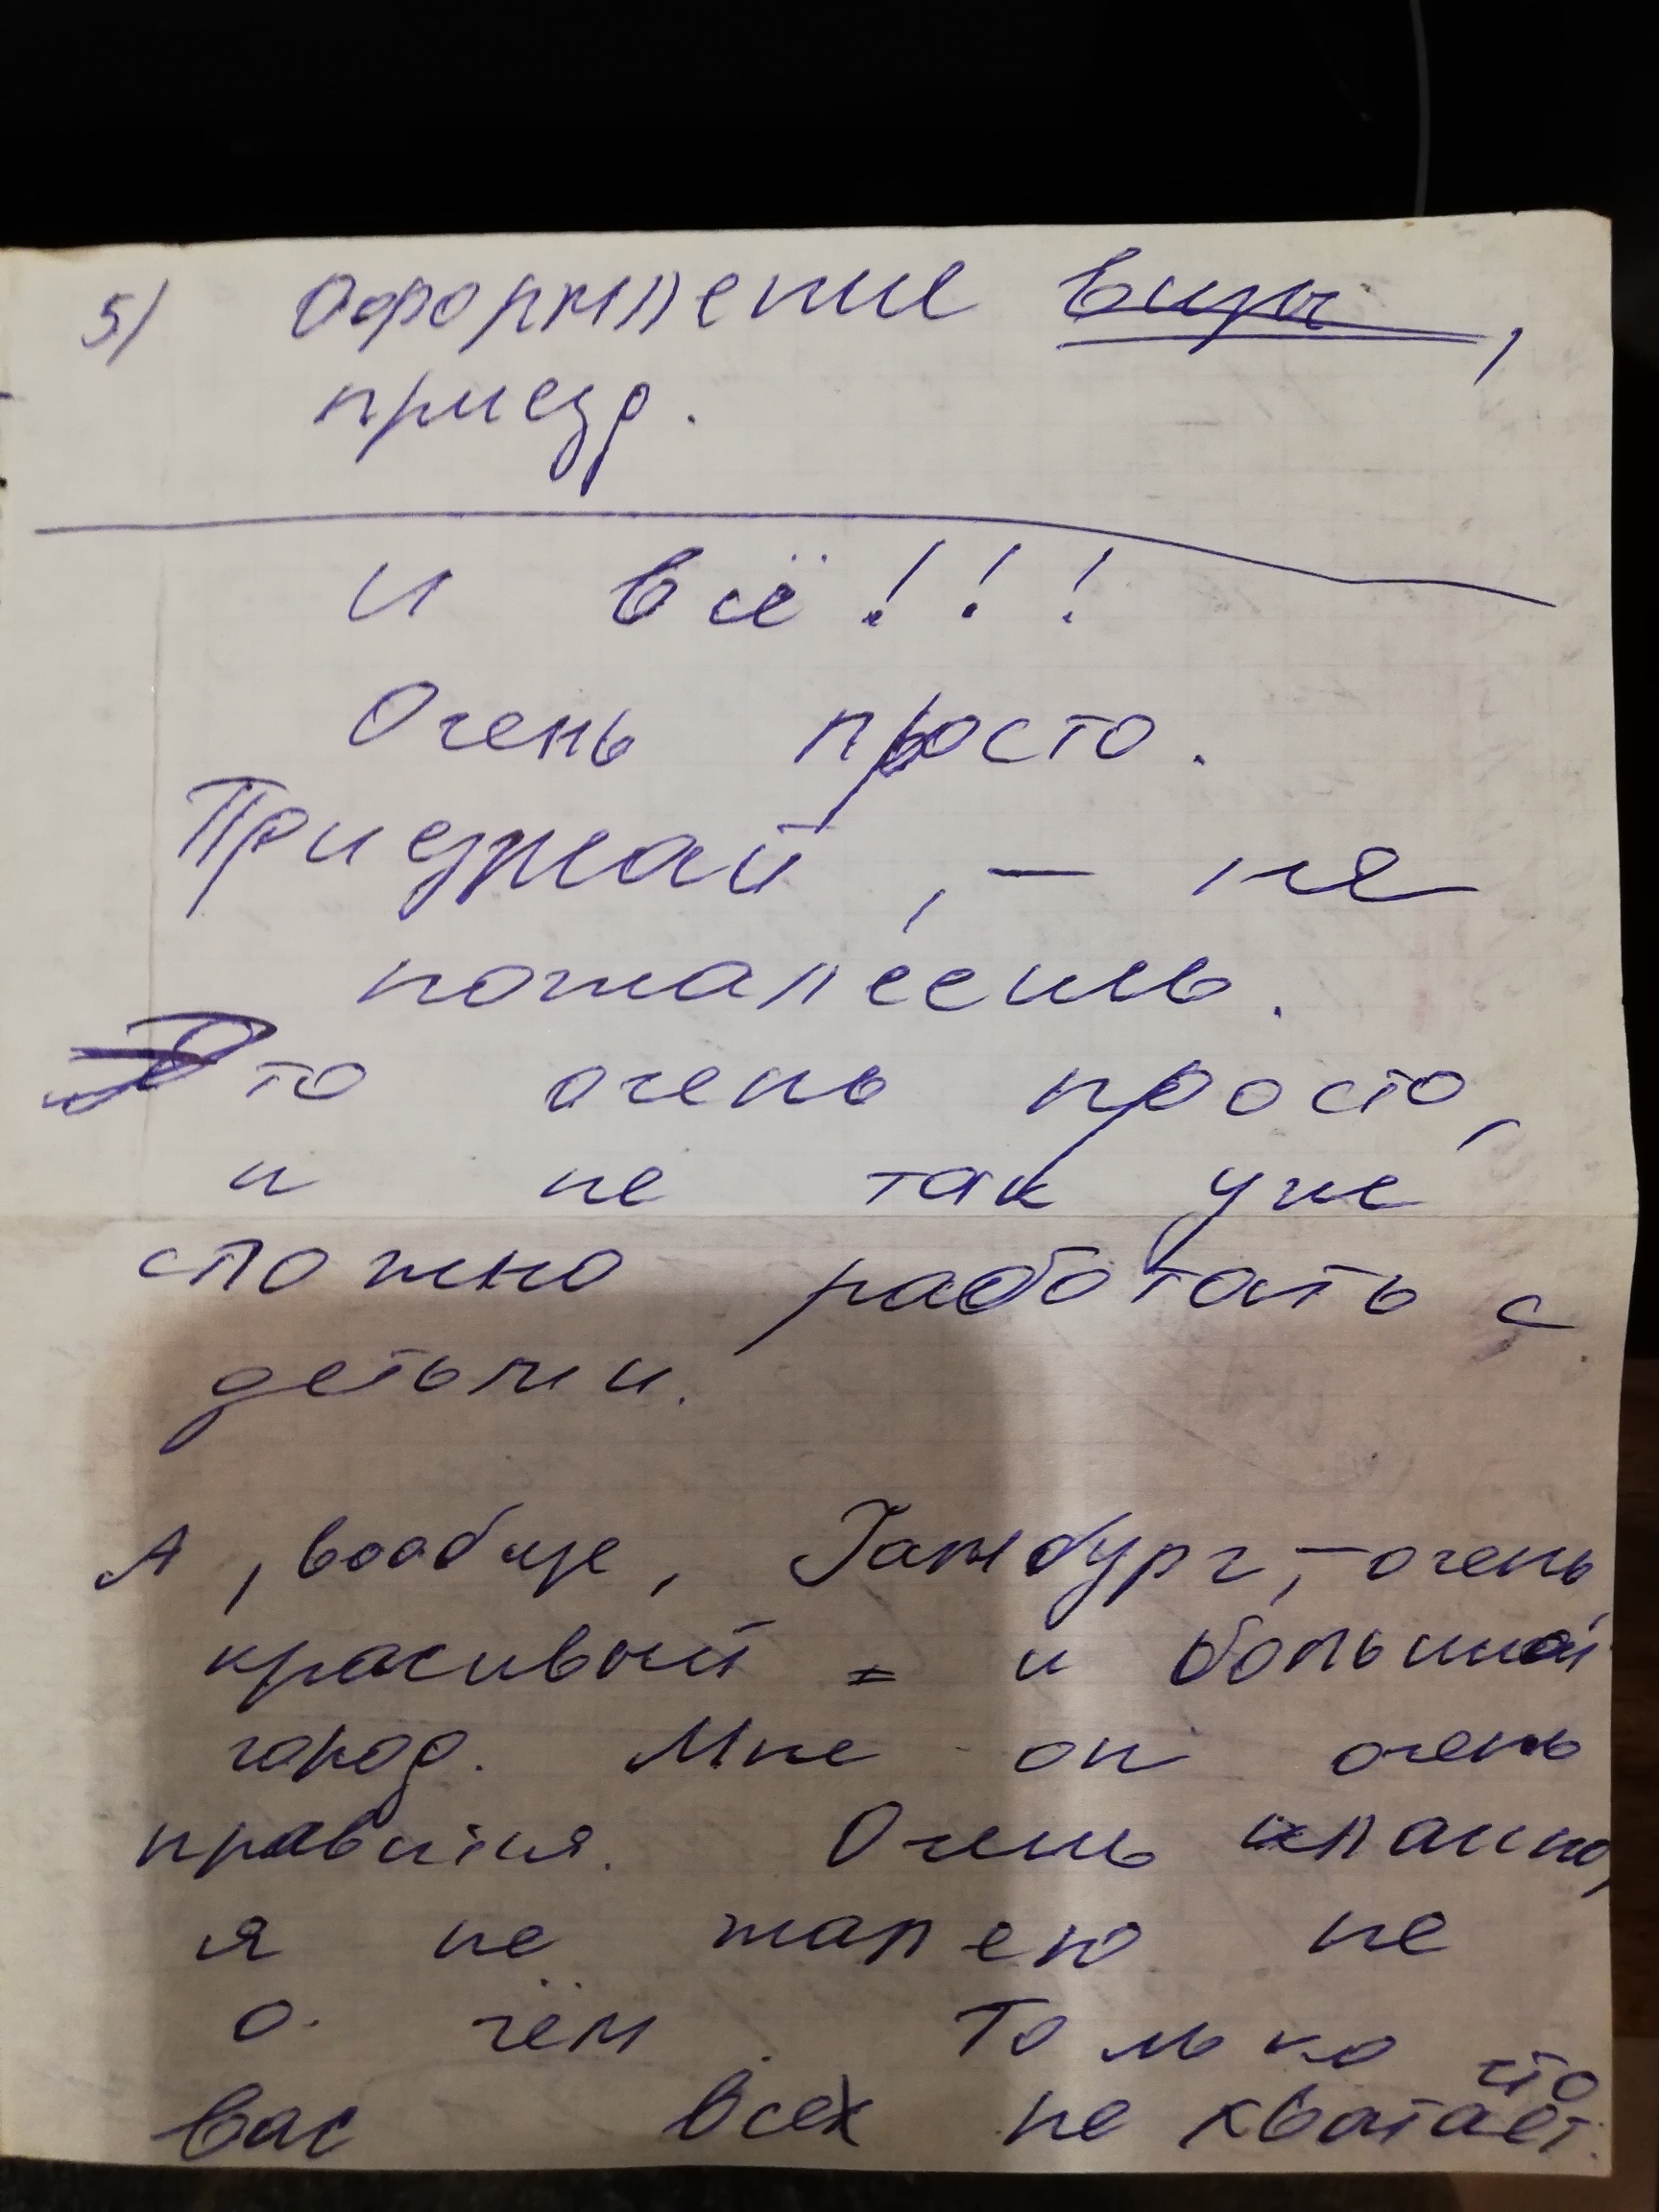 5) Оформление визы,
приезд.
И всё!!!
Очень просто.
Приезжай, — не
пожалеешь.
Это очень просто,
и не так уже
сложно работать с
детьми.
А, вообще, Гамбург, — очень
красивый и большой
город. Мне он очень
нравится. Очень классно,
я не жалею не
о чём. Только что
вас всех не хватает.